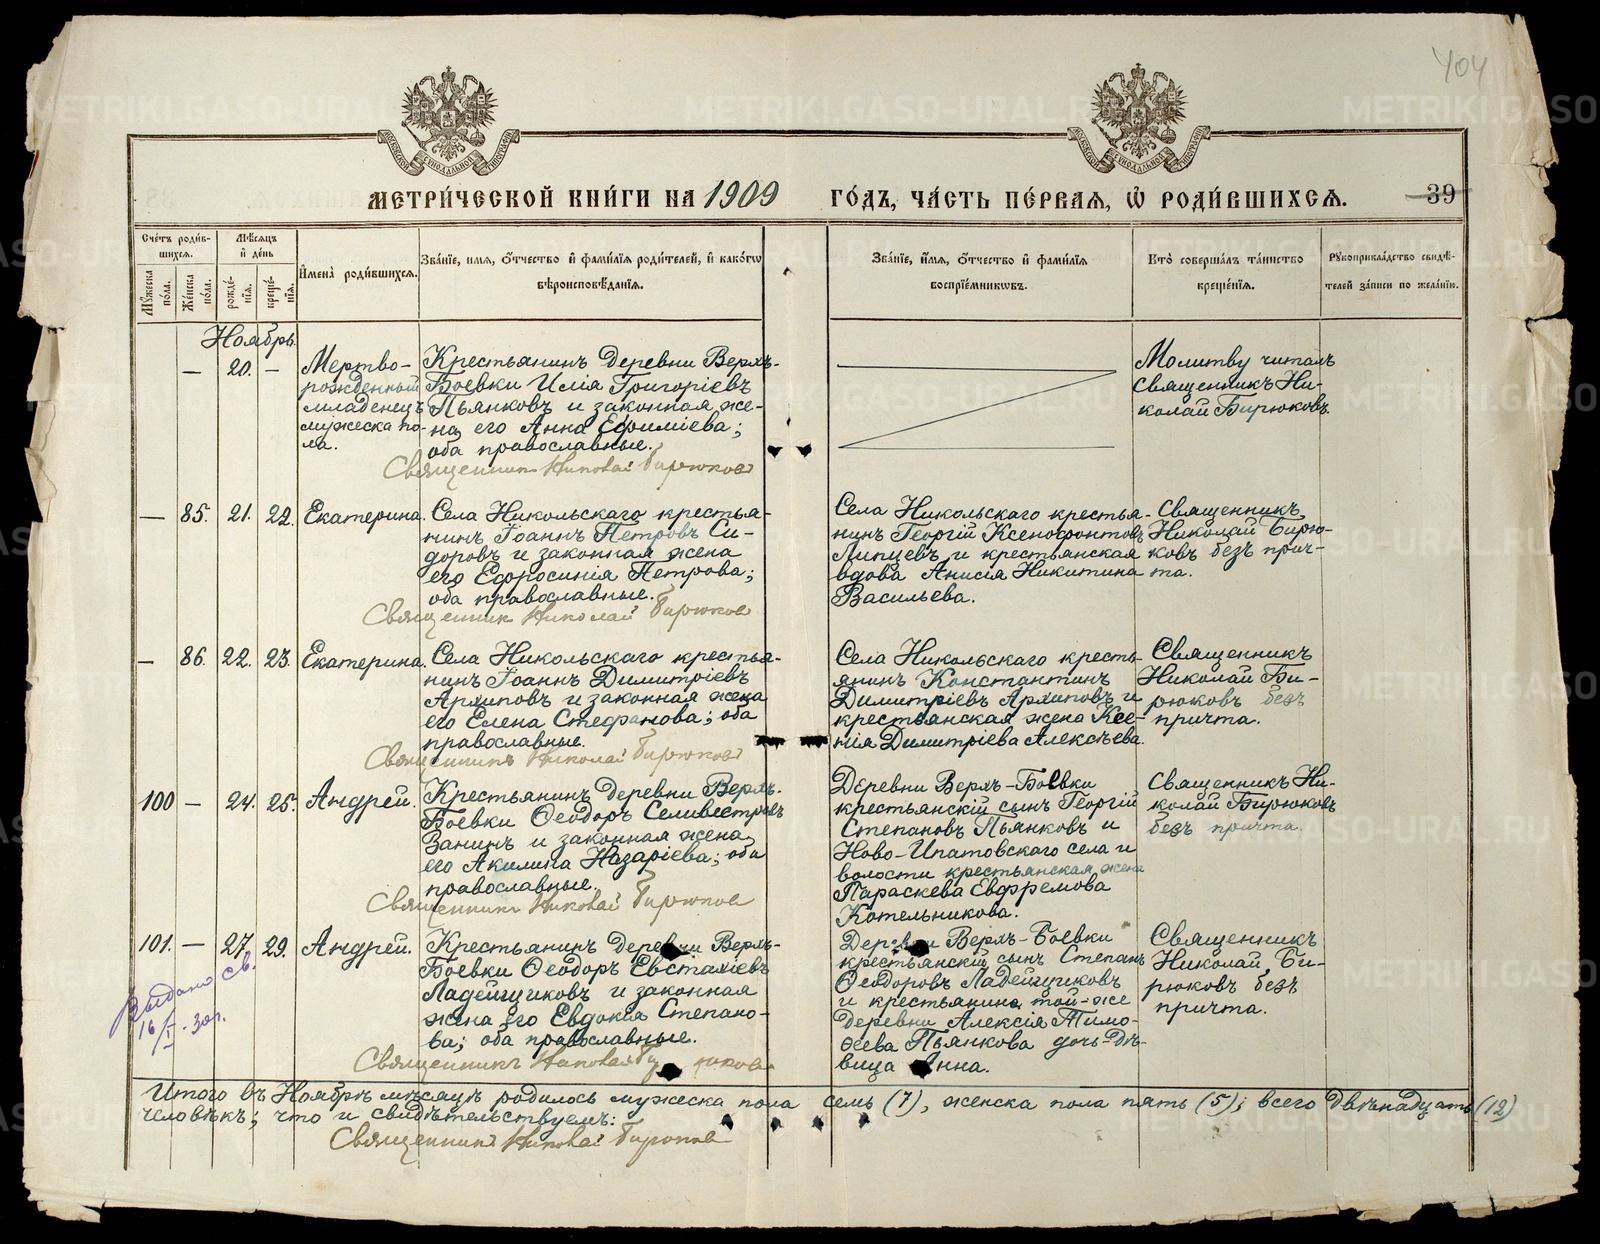 404
МЕТРИ́ЧЕСКОЙ КНИ́ГИ НА 1909 ГО́ДЪ, ЧА́СТЬ ПЕ́РВАЯ, Ѡ РОДИ́ВШИХСЯ. 39
Сче́тъ роди́в-
шихся.
Мѣ́сяцъ
и де́нь
Мꙋ́жеска по́ла.
Же́нска по́ла.
рожде́-
нїя.
креще́-
нїя.
И҆мена̀ роди́вшихся.
Зва́нїе, и́мя, о҆́тчество и҆ фами́лїя роди́телей, и҆ како́гѡ
вѣроисповѣ́данїя.
Зва́нїе, и҆́мя, о҆́тчество и҆ фами́лїя
воспрїе́мникѡвъ.
Кто̀ соверша́лъ та́инство
креще́нїя.
Рꙋкоприкла́дство свидѣ́-
телей за́писи по жела́нїю.
Ноябрь
— 20. —
Мертво-
рожденный
младенецъ
мужеска по-
ла.
Крестьянинъ деревни Верхъ-
Боевки Илія Григоріевъ
Пьянковъ и законная же-
на его Анна Ефиміева;
оба православные.
Священникъ Николай Бирюковъ
Молитву читалъ
священникъ Ни-
колай Бирюковъ.
— 85. 21. 22. Екатерина.
Села Никольскаго крестья-
нинъ Іоаннъ Петровъ Си-
доровъ и законная жена
его Ефросинія Петрова;
оба православные.
Священник Николай Бирюков
Села Никольскаго крестья-
нинъ Георгій Ксенофонтовъ
Липцевъ и крестьянская
вдова Анисія Никитина
Васильева.
Священникъ
Николай Бирю-
ковъ безъ прич-
та.
— 86. 22. 23. Екатерина.
Села Никольскаго крестья-
нинъ Іоаннъ Димитріевъ
Архиповъ и законная жена
его Елена Стефанова; оба
православные.
Священникъ Николай Бирюков
Села Никольскаго кресть-
янинъ Константинъ
Димитріевъ Архиповъ и
крестьянская жена Ксе-
нія Димитріева Алексѣева.
Священникъ
Николай Би-
рюковъ безъ
причта.
100 — 24. 25. Андрей.
Крестьянинъ деревни Верхъ-
Боевки Ѳеодоръ Селивестровъ
Занинъ и законная жена
его Акилина Назаріева; оба
православные.
Священникъ Николай Бирюков
Деревни Верхъ-Боевки
крестьянскій сынъ Георгій
Степановъ Пьянковъ и
Ново-Ипатовскаго села и
волости крестьянская жена
Параскева Евфремова
Котельникова.
Священникъ Ни-
колай Бирюковъ
безъ причта.
101. — 27. 29. Андрей.
Выдано св.
16/I 30г.
Крестьянинъ деревни Верхъ-
Боевки Ѳеодоръ Евстахіевъ
Ладейщиковъ и законная
жена его Евдокія Степано-
ва; оба православные.
Священникъ Николай Бирюков
Деревни Верхъ-Боевки
крестьянскій сынъ Степанъ
Ѳеодоровъ Ладейщиковъ
и крестьянина той-же
деревни Алексія Тимо-
ѳеева Пьянкова дочь-дѣ-
вица Анна.
Священникъ
Николай Би-
рюковъ безъ
причта.
Итого въ Ноябрѣ мѣсяцѣ родилось мужеска пола семь (7), женска пола пять (5); всего двѣнадцать (12)
человѣкъ; что и свидѣтельствуемъ:
Священникъ Николай Бирюков
METRIKI.GASO-URAL.RU